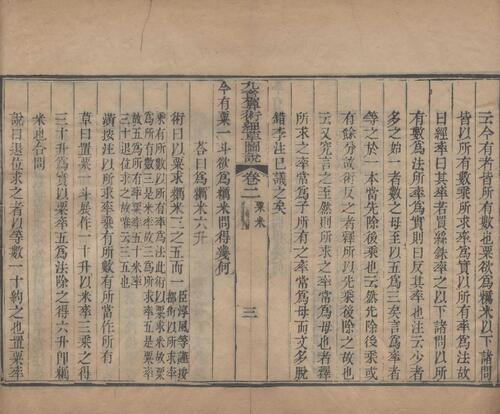 云今有者以所有數也粟欲爲糲米以下諸問
皆以所有數乘所求率爲實以所有率爲法故
曰經率曰其率者買絲銖率之以下諸問以所
有數爲法所率爲實則曰反其率也注云少者
多之始一者數之母至以五爲三矣言爲率者
等之於一本當先除後乘也云然先除後乘或
有餘分故術反之者釋所以先乘後除之故也
云又完言之至然則所求之率當爲母也者釋
所求之率當爲子所有之率當爲母而文多脫
錯李注已議之矣
九章算術細草圖說 卷二 粟米 三
今有粟一斗欲爲糲米問得幾何
荅曰爲糲米六升
術曰以粟求糲米三之五而一 臣淳風等謹按都術以所求率
乘有所數以所有率爲法此術以粟求米故粟
爲所有數三是米率故三爲所求率五是粟率
故五爲所有率粟率五十米率
三十退位求之故惟云三五也
潢按注以所求率乘有所數有所當作所有
草曰置粟一斗展作一十升以米率三乘之得
三十升爲實以粟率五爲法除之得六升卽糲
米也合問
說曰退位求之者以等數一十約之也置粟率